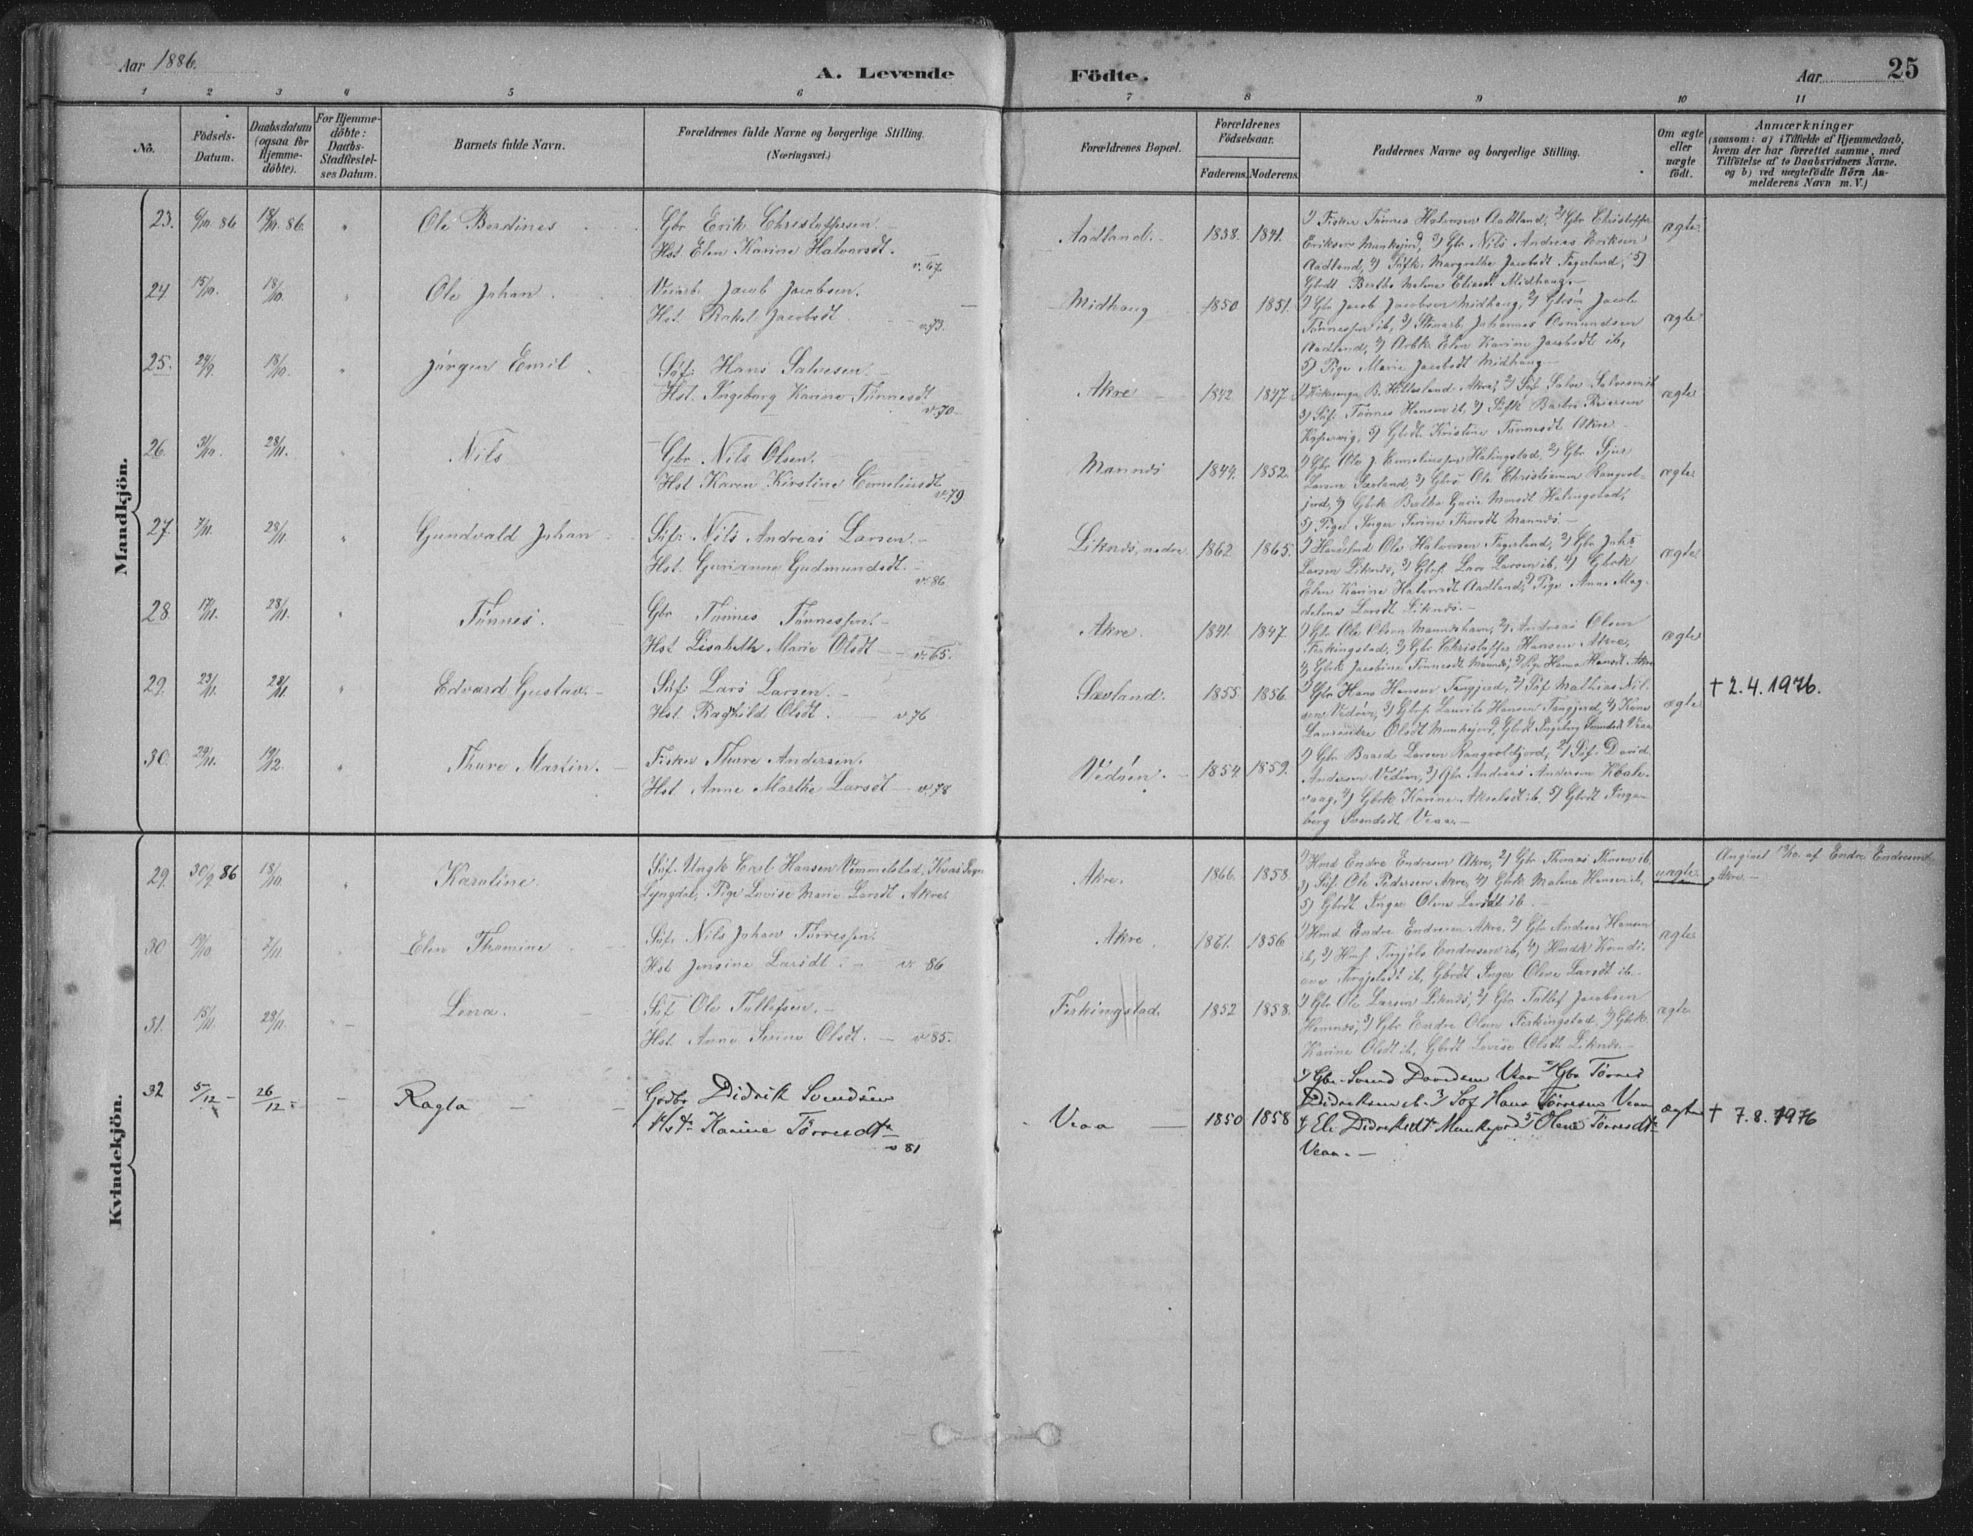 Aar 1886.
A. Levende Födte.
Aar 25
1 2 3 4 5 6 7 8 9 10 11
No.
Födsels-
Datum.
Daabsdatum
(ogsaa for
Hjemme-
döbte).
For Hjemme-
döbte:
Daabs-
Stadfæstel-
ses Datum.
Barnets fulde Navn.
Forældrenes fulde Navne og borgerlige Stilling.
(Næringsvei.)
Forældrenes Bopæl.
Forældrenes
Födselsaar.
Faderens. Moderens.
Faddernes Navne og borgerlige Stilling.
Om ægte
eller
uægte
födt.
Anmærkninger
(saasom: a) i Tilfælde af Hjemmedaab,
hvem der har forrettet samme, med
Tilföielse af to Daabsvidners Navne.
og b) ved uægtefödte Börn An-
melderens Navn m. V.)
Mandkjön.
23. 6/10 86 18/10 86. " Ole Berdines
Gbr Erik Christoffersen
Hst. Elen Karine Halvorsdt. v. 67.
Aadland. 1838. 1841.
1) Fisker Tønnes Halvorsen Aadland, 2) Gbr Christoffer
Eriksen Munkejord, 3) Gbr Nils Andreas Eriksen
Aadland, 4) Margrethe Jacobsdt Fageland, 5)
Gbdt Berthe Malene Midhaug.
ægte
24 15/10. 18/10. " Ole Johan.
Jacob Jacobsen.
Hst. Rakel Jacobsdt v. 73.
Midhaug 1850 1851.
1) Gbr Jacob Jacobsen Midhaug, 2) Jacob
Tønnessen ib, 3) Johannes Osmundsen
Aadland, 4) Elen Karine Jacobsdt ib,
5) Pige Marie Jacobsdt Midhaug
ægte
25. 24/9. 18/10. " Jørgen Emil
Søf: Hans Salvesen.
Hst. Ingeborg Karine Tønnesdt v. 70
Akre 1842 1847.
1) Kirkesanger B. Hilleland Akre, 2) Søf Salve Salvesen ib
3) Søf: Tønnes Hansen ib, 4) Barbro
5) Gbdt Kristine Tønnesdt Akre
ægte
26. 31/10. 28/11. " Nils
Gbr Nils Olsen.
Hst Karen Kirstine Corneliusdt v. 79
Mannes 1844. 1852.
1) Gbr Ole J. Corneliussen Hålingstad, 2) Gbr Sjur
Larsen Sævland, 3) Ole Christiansen
4) Gbrk Bertha
5) Pige Inger Serine Mannes
ægte
27. 7/11. 28/11. " Gundvald Johan
Søf: Nils Andreas Larsen.
Hst. Gurianne Gudmundsdt. v. 86.
Liknes, nedre. 1862 1865.
1) Ole Halvorsen Fageland, 2) Gbr Johs
Larsen Liknes, 3) Lars Larsen ib, 4) Gbrk
Elen Karine Halvorsdt Aadland, 5) Pige Anna Mag-
dalena Larsdt Liknes.
ægte
28. 17/11. 28/11. " Tønnes.
Gbr Tønnes Tønnessen.
Hst Lisabeth Marie Olsdt v. 65.
Akre. 1841. 1847.
1) Gbr Ole Olsen Manneshavn, 2) Andreas Olsen
Ferkingstad, 3) Gbr Christoffer Hansen Akre,
4) Gbrk Jacobine Tønnesdt Mannes, 5) Pige Hanna Hansdt Akre
ægte
29. 23/11. 28/11. " Edvard Gustav.
Søf: Lars Larsen.
Hst Raghild Olsdt. v. 76
Sævland. 1855 1856.
1) Gbr Hans Hansen Tangjerd, 2) Søf Mathias Nil-
sen Vedøen, 3) Laurits Hansen Tangjerd, 4)
Olsdt Munkejord, Gbdt Ingeborg Svendsdt Veaa
ægte † 2.4.1976.
30. 29/11. 19/12. " Thure Martin.
Fisker Thure Andersen.
Hst. Anne Marthe Larsdt v. 78
Vedøen. 1854 1859.
1) Gbr Baard Larsen 2) Søf. David
Andersen Vedøen, 3) Gbr Andreas Andersen Kvale-
vaag, 4) Gbrk Karine Akselsdt ib, 5) Gbdt Inge-
borg Svendsdt Veaa.
Kvindekjön.
29. 30/9 86 18/10. " Karoline
Søf. Ungk Carl Hansen Vemmelstad, Kvas Sogn
Lyngdal, Pige Lovise Marie Larsdt Akre.
Akre. 1866. 1858.
1) Hmd Endre Endresen Akre, 2) Gbr Thomas ib.
3) Søf. Ole Pedersen Akre, 4) Gbrk Malene Hansen ib,
5) Gbdt Inger Olene Larsdt ib.
uægte. Angivet 13/10. af Endre Endresen
Akre.
30 19/10. 7/11. " Elen Thomine
Søf. Nils Johan Tørressen.
Hst Jensine Larsdt. v. 86
Akre. 1861. 1856
1) Hmd Endre Endresen Akre, 2) Gbr Andreas Hansen
ib, 3) Torgjels Endresen ib, 4)
Torgjelsdt ib, Gbdt Inger Olene Larsdt ib.
ægte
31. 15/11. 28/11. Lina.
Søf Ole Tollefsen.
Hst. Anne Serine Olsdt. v. 85.
Ferkingstad. 1852 1858.
1) Gbr Ole Larsen Liknes, 2) Gbr Tollef Jacobsen
Hemnes, 3) Gbr Endre Olsen Ferkingstad, 4) Gbrk
Karine Olsdt ib, Gbdt Lovise Olsdt Liknes.
ægte
32 5/12 26/12 Ragla
Grdbr Didrik Svendsen
Hst. Karine Tørresdtr v 81
Veaa 1850 1858
1) Gbr Svend Davidsen Veaa 2) Gbr Tørres
Didriksen ib. 3) Søf Hans Tørresen Veaa
4) Eli Didriksdtr Munkejord 5) Olene Tørresdtr
Veaa.
ægte † 7.8.1976